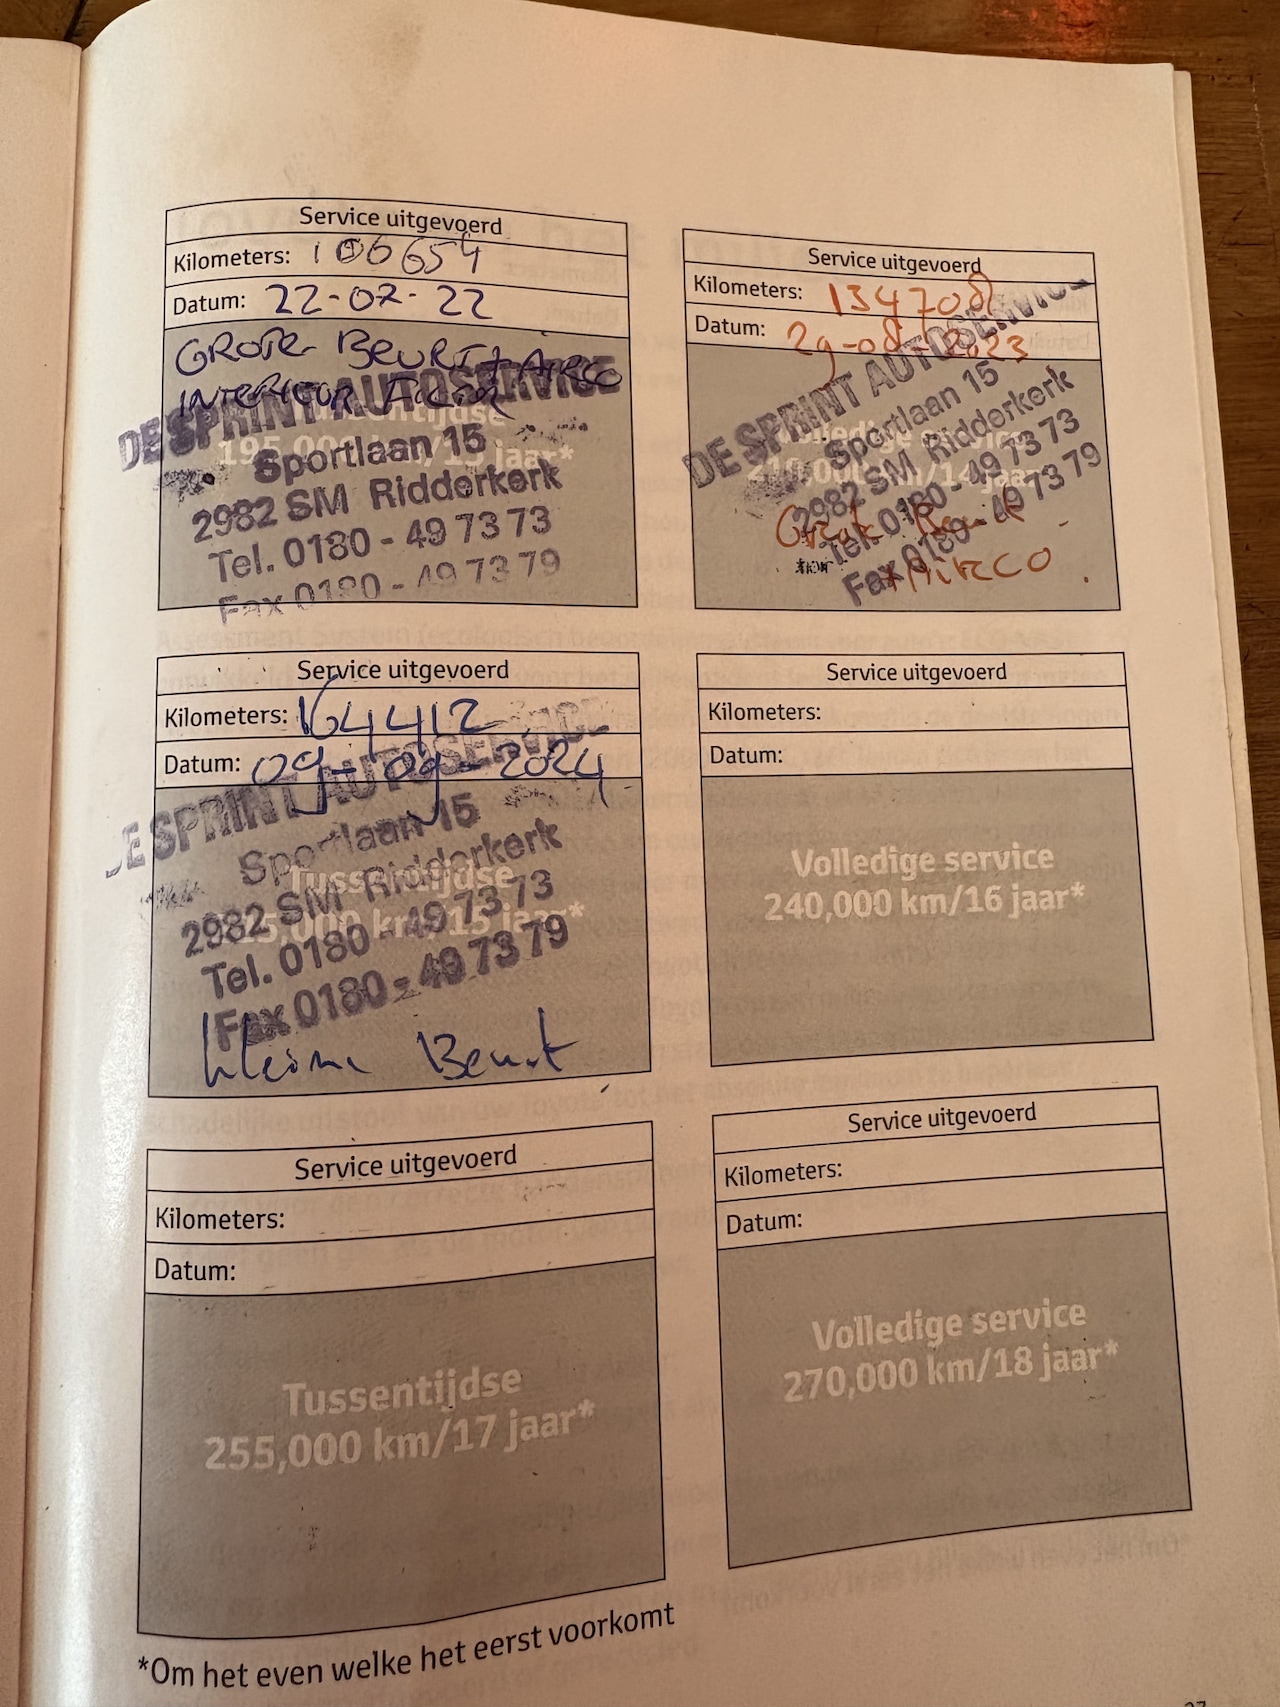 Service uitgevoerd
Kilometers: 106654
Datum: 22-07-22
GROTE BEURT + AIRCO
INTERIEUR
DE SPRINT AUTOSERVICE
195,000 km/13 jaar*
Sportlaan 15
2982 SM Ridderkerk
Tel. 0180 - 49 73 73
Fax 0180 - 49 73 79
Service uitgevoerd
Kilometers: 134708
Datum: 29-08-2023
DE SPRINT AUTOSERVICE
Sportlaan 15
210,000 km/14 jaar*
2982 SM Ridderkerk
Tel. 0180 - 49 73 73
Fax 0180 - 49 73 79
Grote Beurt
+ Airco
Service uitgevoerd
Kilometers: 164412
Datum: 09-09-2024
DE SPRINT AUTOSERVICE
Sportlaan 15
Tussentijdse
2982 SM Ridderkerk
225,000 km/15 jaar*
Tel. 0180 - 49 73 73
Fax 0180 - 49 73 79
kleine Beurt
Service uitgevoerd
Kilometers:
Datum:
Volledige service
240,000 km/16 jaar*
Service uitgevoerd
Kilometers:
Datum:
Tussentijdse
255,000 km/17 jaar*
Service uitgevoerd
Kilometers:
Datum:
Volledige service
270,000 km/18 jaar*
*Om het even welke het eerst voorkomt